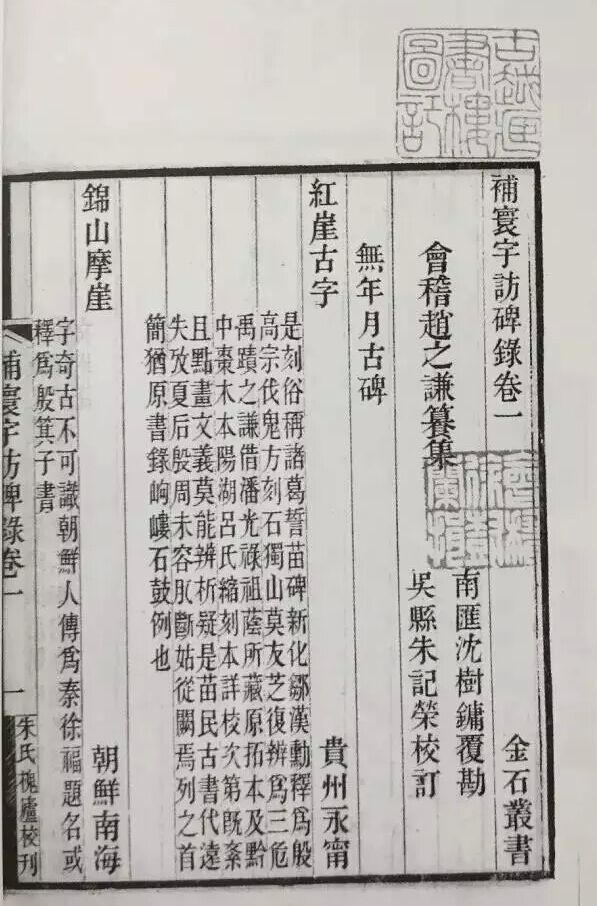 古越進
書樓
圖記
補寰宇訪碑錄卷一
金石叢書
會稽趙之謙纂集
南匯沈樹鏞覆勘
吳縣朱記榮校訂
無年月古碑
紅崖古字
貴州永甯
是刻俗稱諸葛誓苗碑新化鄒漢勳釋爲殷
高宗伐鬼方刻石獨山莫友芝復辨爲三危
禹蹟之謙借潘光祿祖蔭所藏原拓本及黔
中棗木本陽湖呂氏縮刻本詳校次第既紊
且點畫文義莫能辨析疑是苗民古書代遠
失攷夏后殷周未容肊斷姑從闕焉列之首
簡猶原書錄岣嶁石鼓例也
錦山摩崖
朝鮮南海
字奇古不可識朝鮮人傳爲秦徐福題名或
釋爲殷箕子書
補寰宇訪碑錄卷一
一
朱氏槐廬校刊